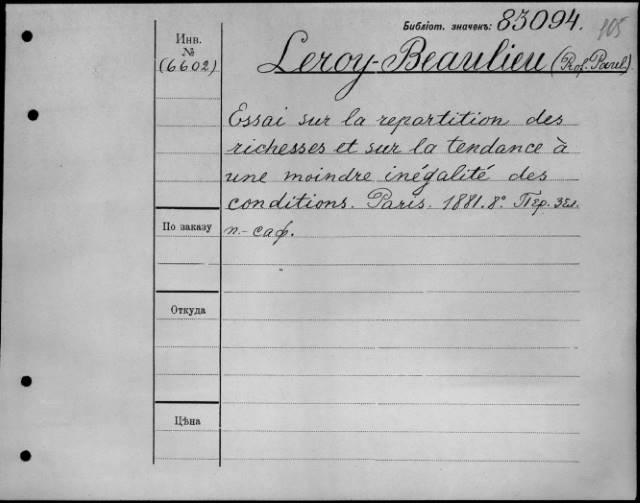 Библіот. значекъ: 83094. 105
Инв.
№
(6602)
Leroy-Beaulieu (Prof. Paul)
Essai sur la repartition des
richesses et sur la tendance à
une moindre inégalité des
conditions. Paris. 1881. 8° Пер. зел.
п.-саф.
По заказу
Откуда
Цѣна